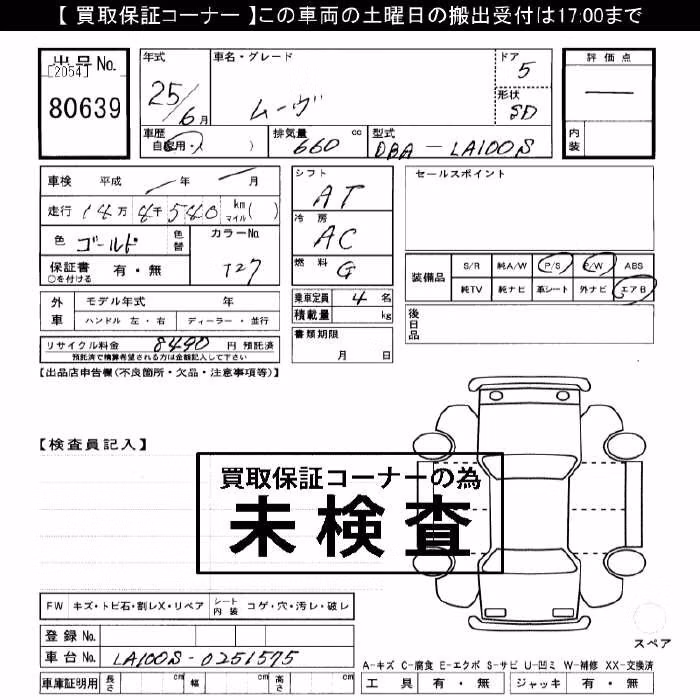 【 買取保証コーナー 】この車両の土曜日の搬出受付は17:00まで
出品No.
[2054]
80639
年式 車名・グレード ドア 5
25/6月 ムーヴ 形状 5D
車歴 自家用・ ( ) 排気量 660 cc 型式 DBA-LA100S
評価点
—
内装
車検 平成 年 月
走行 14万 8千 540 km マイル ( )
色 ゴールド 色替 カラーNo. T27
保証書 有・無
○を付ける
シフト AT
冷房 AC
燃料 G
乗車定員 4 名
積載量 kg
書類期限
月 日
セールスポイント
装備品 S/R 純A/W P/S P/W ABS
純TV 純ナビ 革シート 外ナビ エアB
後日品
外車 モデル年式 年
ハンドル 左・右 ディーラー・並行
リサイクル料金 8490 円 預託済
預託済で精算希望される方は金額記入して下さい
【出品店申告欄(不良箇所・欠品・注意事項等)】
【検査員記入】
買取保証コーナーの為
未検査
FW キズ・トビ石・割レX・リペア シート内装 コゲ・穴・汚レ・破レ
登録No.
車台No. LA100S-0251575
車庫証明用 長さ cm 幅 cm 高さ cm
スペア
A-キズ C-腐食 E-エクボ S-サビ U-凹ミ W-補修 XX-交換済
工具 有・無 ジャッキ 有・無